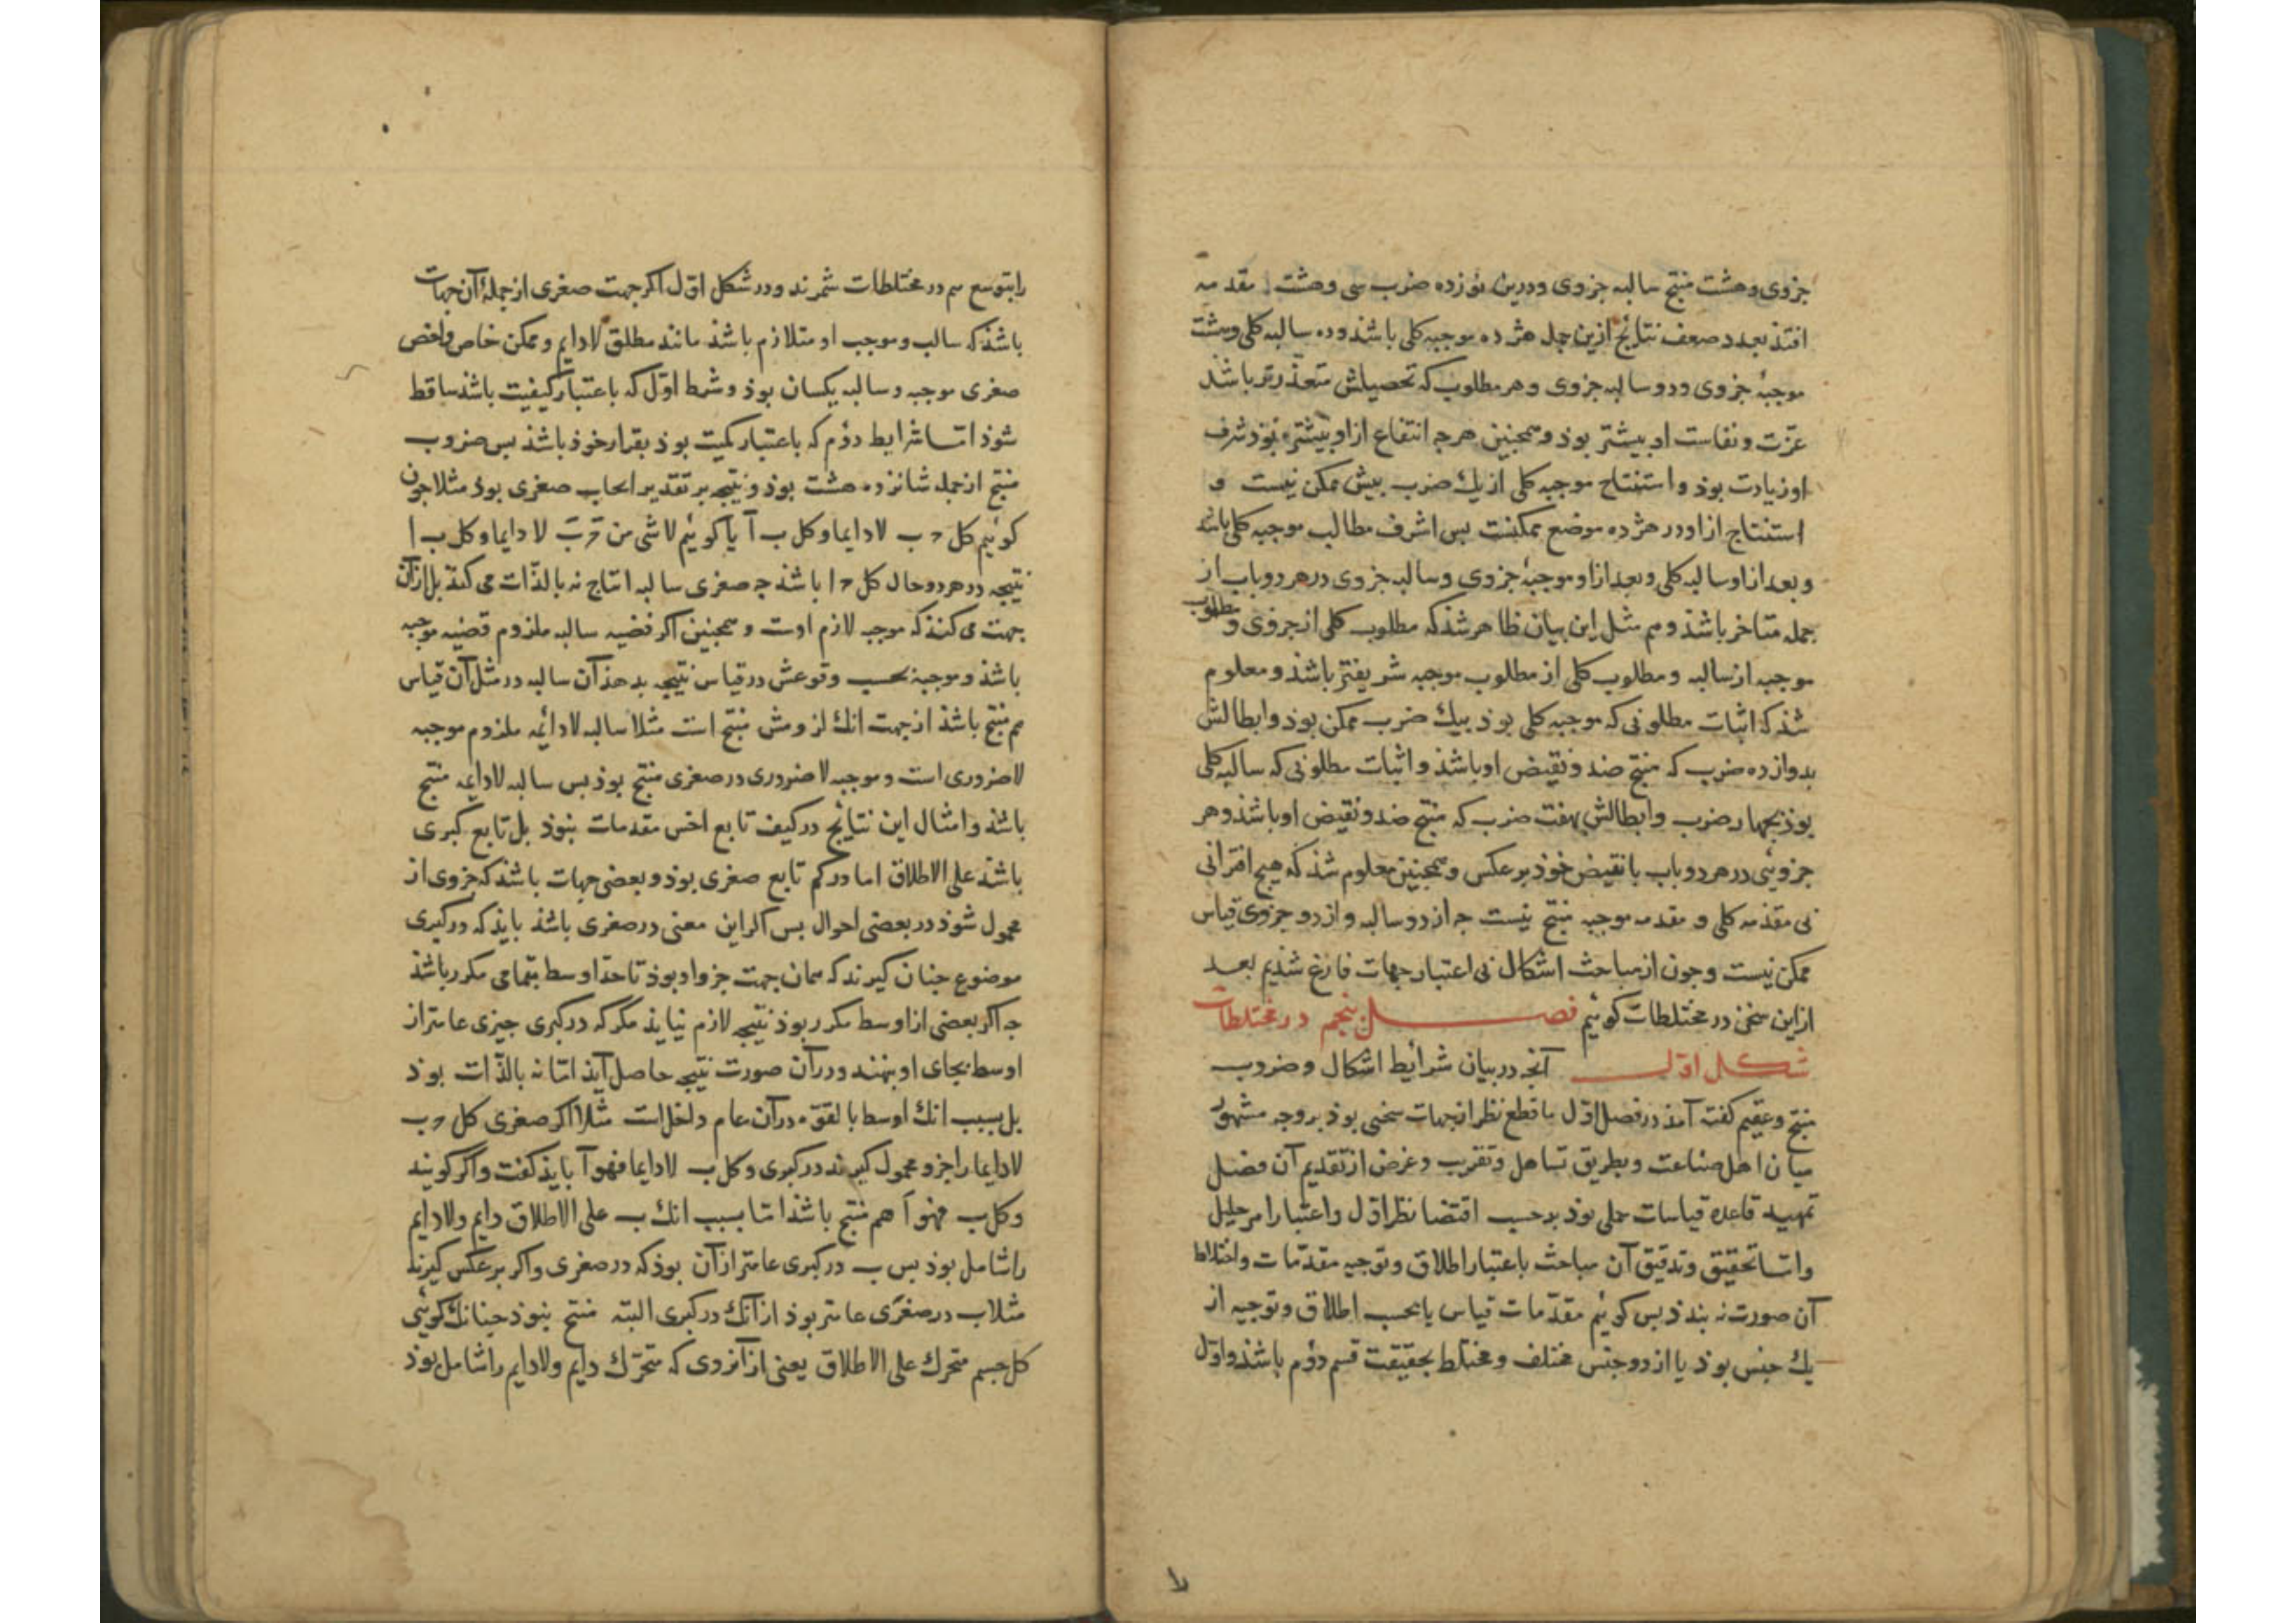 جزوی وهشت منتج سالبه جزوی ودرین نوزده ضرب سی وهشت مقدمه
افتذ بعدد ضعف نتایج ازین جمله هژده موجبه کلی باشند وده سالبه کلی وهشت
موجبهٔ جزوی ودو سالبه جزوی وهر مطلوب که تحصیلش متعذّرتر باشذ
عزّت ونفاست او بیشتر بوذ وهمجنین هرجه انتفاع ازاو بیشتر بوذ شرف
او زیادت بوذ واستنتاج موجبه کلی از یك ضرب بیش ممکن نیست و
استنتاج ازاو در هژده موضع ممکنست بس اشرف مطالب موجبه کلی باشد
وبعد ازاو سالبه کلی وبعد ازاو موجبهٔ جزوی وسالبه جزوی درهر دو باب از
جمله متاخر باشذ وهم بمثل این بیان ظاهر شذ که مطلوب کلی از جزوی ومطلوب
موجبه از سالبه ومطلوب کلی از مطلوب موجبه شریفتر باشذ ومعلوم
شذ که اثبات مطلوبی که موجبه کلی بوذ بیك ضرب ممکن بوذ وابطالش
بدوازده ضرب که منتج ضد ونقیض او باشذ واثبات مطلوبی که سالبه کلی
بوذ بجهار ضرب وابطالش بهفت ضرب که منتج ضد ونقیض او باشذ وهر
جزویئی درهر دو باب با نقیض خوذ برعکس وهمجنین معلوم شذ که هیج اقترانی
بی مقدمه کلی و مقدمه موجبه منتج نیست جه از دو سالبه واز دو جزوی قیاس
ممکن نیست وجون از مباحث اشکال بی اعتبار جهات فارغ شذیم بعد
ازاین سخن در مختلطات کوئیم فصل بنجم در مختلطات
شکل اوّل آنجه در بیان شرایط اشکال وضروب
منتج وعقیم کفته آمذ در فصل اوّل با قطع نظر از جهات سخنی بوذ بر وجه مشهور
میان اهل صناعت وبطریق تساهل وتقریب وغرض از تقدیم آن فصل
تمهید قاعده قیاسات حملی بوذ برحسب اقتضا نظر اوّل واعتبار امر جلیل
وامّا تحقیق وتدقیق آن مباحث باعتبار اطلاق وتوجیه مقدّمات واختلاط
آن صورت نه بندذ بس کوئیم مقدّمات قیاس یا بحسب اطلاق وتوجیه از
یك جنس بوذ یا از دو جنس مختلف ومختلط بحقیقت قسم دوّم باشذ واوّل
را بتوسع هم در مختلطات شمرند ودر شکل اوّل اکر جهت صغری از جملهٔ آن جهات
باشذ که سالب وموجب او متلازم باشذ مانند مطلق لادایم وممکن خاص واخص
صغری موجبه وسالبه یکسان بوذ وشرط اوّل که باعتبار کیفیت باشذ ساقط
شوذ امّا شرایط دوّم که باعتبار کمیت بوذ بقرار خوذ باشذ بس ضروب
منتج از جمله شانزده هشت بوذ ونتیجه بر تقدیر ایجاب صغری بوذ مثلا جون
کوئیم کل ح ب لا دایما وکل ب آ یا کوئیم لا شی من ح ب لا دایما وکل ب ا
نتیجه درهر دو حال کل ح ا باشذ جه صغری سالبه انتاج نه بالذّات می کند بل ازان
جهت می کنذ که موجبه لازم اوست وهمجنین اکر قضیه سالبه ملزوم قضیه موجبه
باشذ وموجبهٔ بحسب وقوعش در قیاس نتیجه بدهذ آن سالبه در مثل آن قیاس
هم منتج باشذ از جهت انك لازمش منتج است مثلا سالبه لادائمه ملزوم موجبه
لا ضروری است وموجبه لا ضروری در صغری منتج بوذ بس سالبه لادایمه منتج
باشذ وامثال این نتایج در کیف تابع اخس مقدمات نبوذ بل تابع کبری
باشذ علی الاطلاق اما در کم تابع صغری بوذ وبعضی جهات باشذ که جزوی از
محمول شوذ در بعضی احوال بس اکر این معنی در صغری باشذ بایذ که در کبری
موضوع جنان کیرند که همان جهت جزو او بوذ تا حدّ اوسط بتمامی مکرر باشذ
جه اکر بعضی از اوسط مکرر بوذ نتیجه لازم نیایذ مکر که در کبری جیزی عامتر از
اوسط بجای او بنهند ودر آن صورت نتیجه حاصل آیذ امّا نه بالذّات بوذ
بل بسبب انك اوسط بالقوّه در آن عام داخل است مثلا اکر صغری کل ح ب
لادایما را جزو محمول کیرند در کبری وکل ب لادایما فهو آ بایذ کفت واکر کویند
وکل ب فهو آ هم منتج باشذ امّا بسبب انك ب علی الاطلاق دایم ولادایم
را شامل بوذ بس ب در کبری عامتر از آن بوذ که در صغری واکر برعکس کیرند
مثلا ب در صغری عامتر بوذ از آنك در کبری البته منتج نبوذ جنانك کوئی
کل جسم متحرك علی الاطلاق یعنی از آنروی که متحرّك دایم ولادایم را شامل بوذ